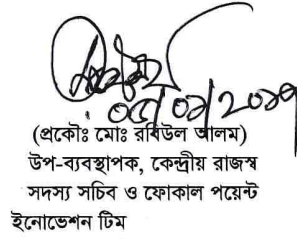 ০৫/০৯/২০১৭
(প্রকৌঃ মোঃ রবিউল আলম)
উপ-ব্যবস্থাপক, কেন্দ্রীয় রাজস্ব
সদস্য সচিব ও ফোকাল পয়েন্ট
ইনোভেশন টিম